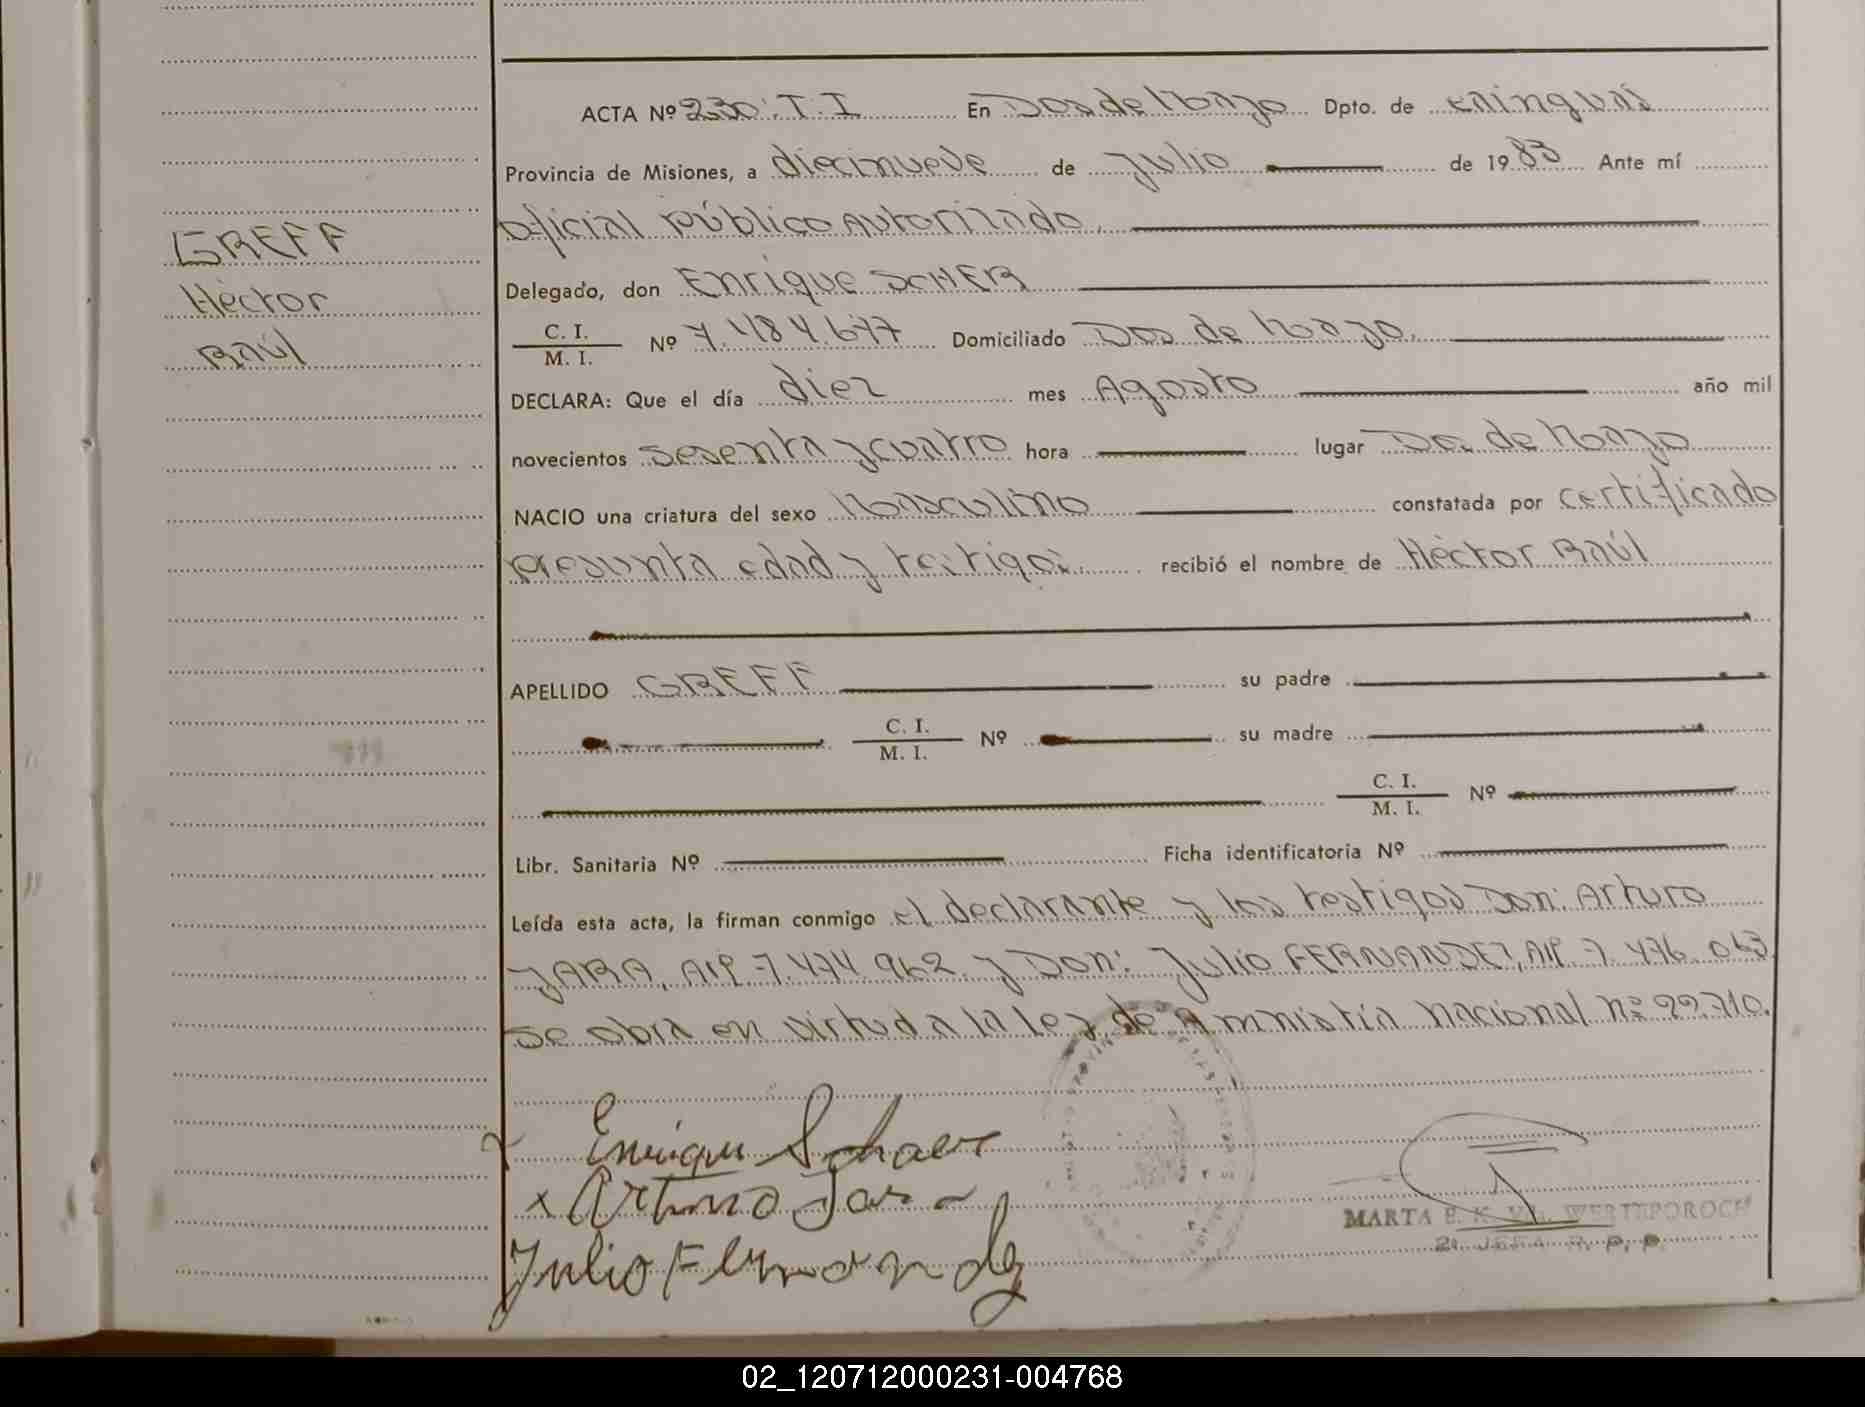 ACTA Nº 230. T. I. En Dos de Mayo Dpto. de Cainguás
Provincia de Misiones, a diecinueve de Julio de 1983 Ante mí
Oficial Público Autorizado.
GREFF
Héctor
Raúl
Delegado, don Enrique SCHER
C. I.
M. I. Nº 7.484.677 Domiciliado Dos de Mayo.
DECLARA: Que el día diez mes Agosto año mil
novecientos sesenta y cuatro hora lugar Dos de Mayo
NACIO una criatura del sexo Masculino constatada por certificado
presunta edad y testigos. recibió el nombre de Héctor Raúl
APELLIDO GREFF su padre
C. I.
M. I. Nº su madre
C. I.
M. I. Nº
Libr. Sanitaria Nº Ficha identificatoria Nº
Leída esta acta, la firman conmigo el declarante y los testigos Don: Arturo
JARA, MIº 7.474.962. y Don: Julio FERNANDEZ, MIº 7.476.063
se obra en virtud a la Ley de Amnistía Nacional nº 22.710.
Enrique Schaer
x Arturo Jara
Julio Fernandez
MARTA E. K. Vd. WERTEPOROCH
2ª JEFA R. P. P.
02_120712000231-004768